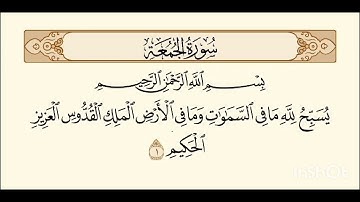 سُورَةُ الْجُمُعَةِ
بِسْمِ اللَّهِ الرَّحْمَٰنِ الرَّحِيمِ
يُسَبِّحُ لِلَّهِ مَا فِي السَّمَاوَاتِ وَمَا فِي الْأَرْضِ الْمَلِكِ الْقُدُّوسِ الْعَزِيزِ
الْحَكِيمِ ١
InShot